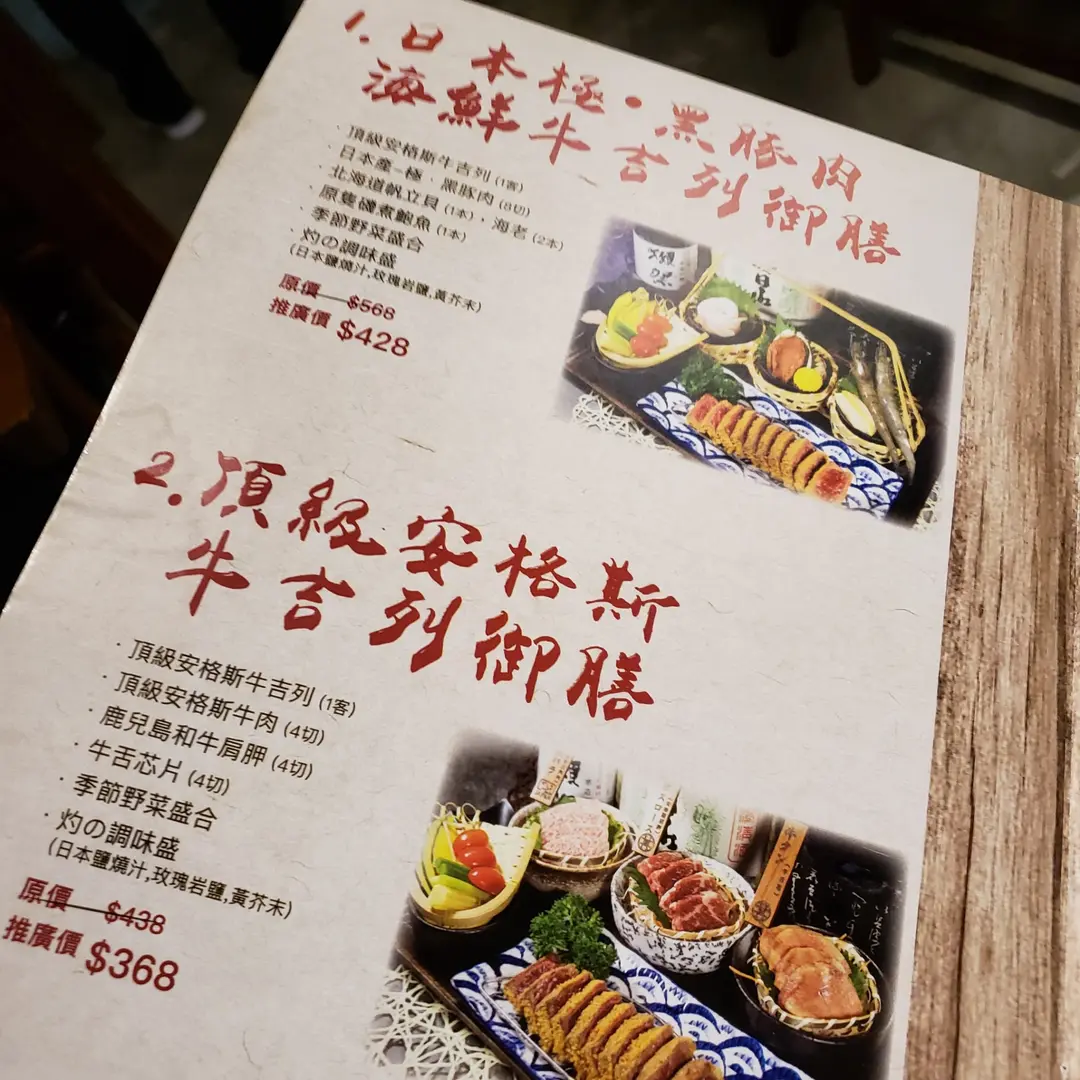 1. 日本極・黑豚肉
海鮮牛吉列御膳
· 頂級安格斯牛吉列 (1客)
· 日本產-極．黑豚肉 (8切)
· 北海道帆立貝 (1本)，海老 (2本)
· 原隻磯煮鮑魚 (1本)
· 季節野菜盛合
· 灼の調味盛
(日本鹽燒汁,玫瑰岩鹽,黃芥末)
原價 $568
推廣價 $428
2. 頂級安格斯
牛吉列御膳
· 頂級安格斯牛吉列 (1客)
· 頂級安格斯牛肉 (4切)
· 鹿兒島和牛肩胛 (4切)
· 牛舌芯片 (4切)
· 季節野菜盛合
· 灼の調味盛
(日本鹽燒汁,玫瑰岩鹽,黃芥末)
原價 $438
推廣價 $368